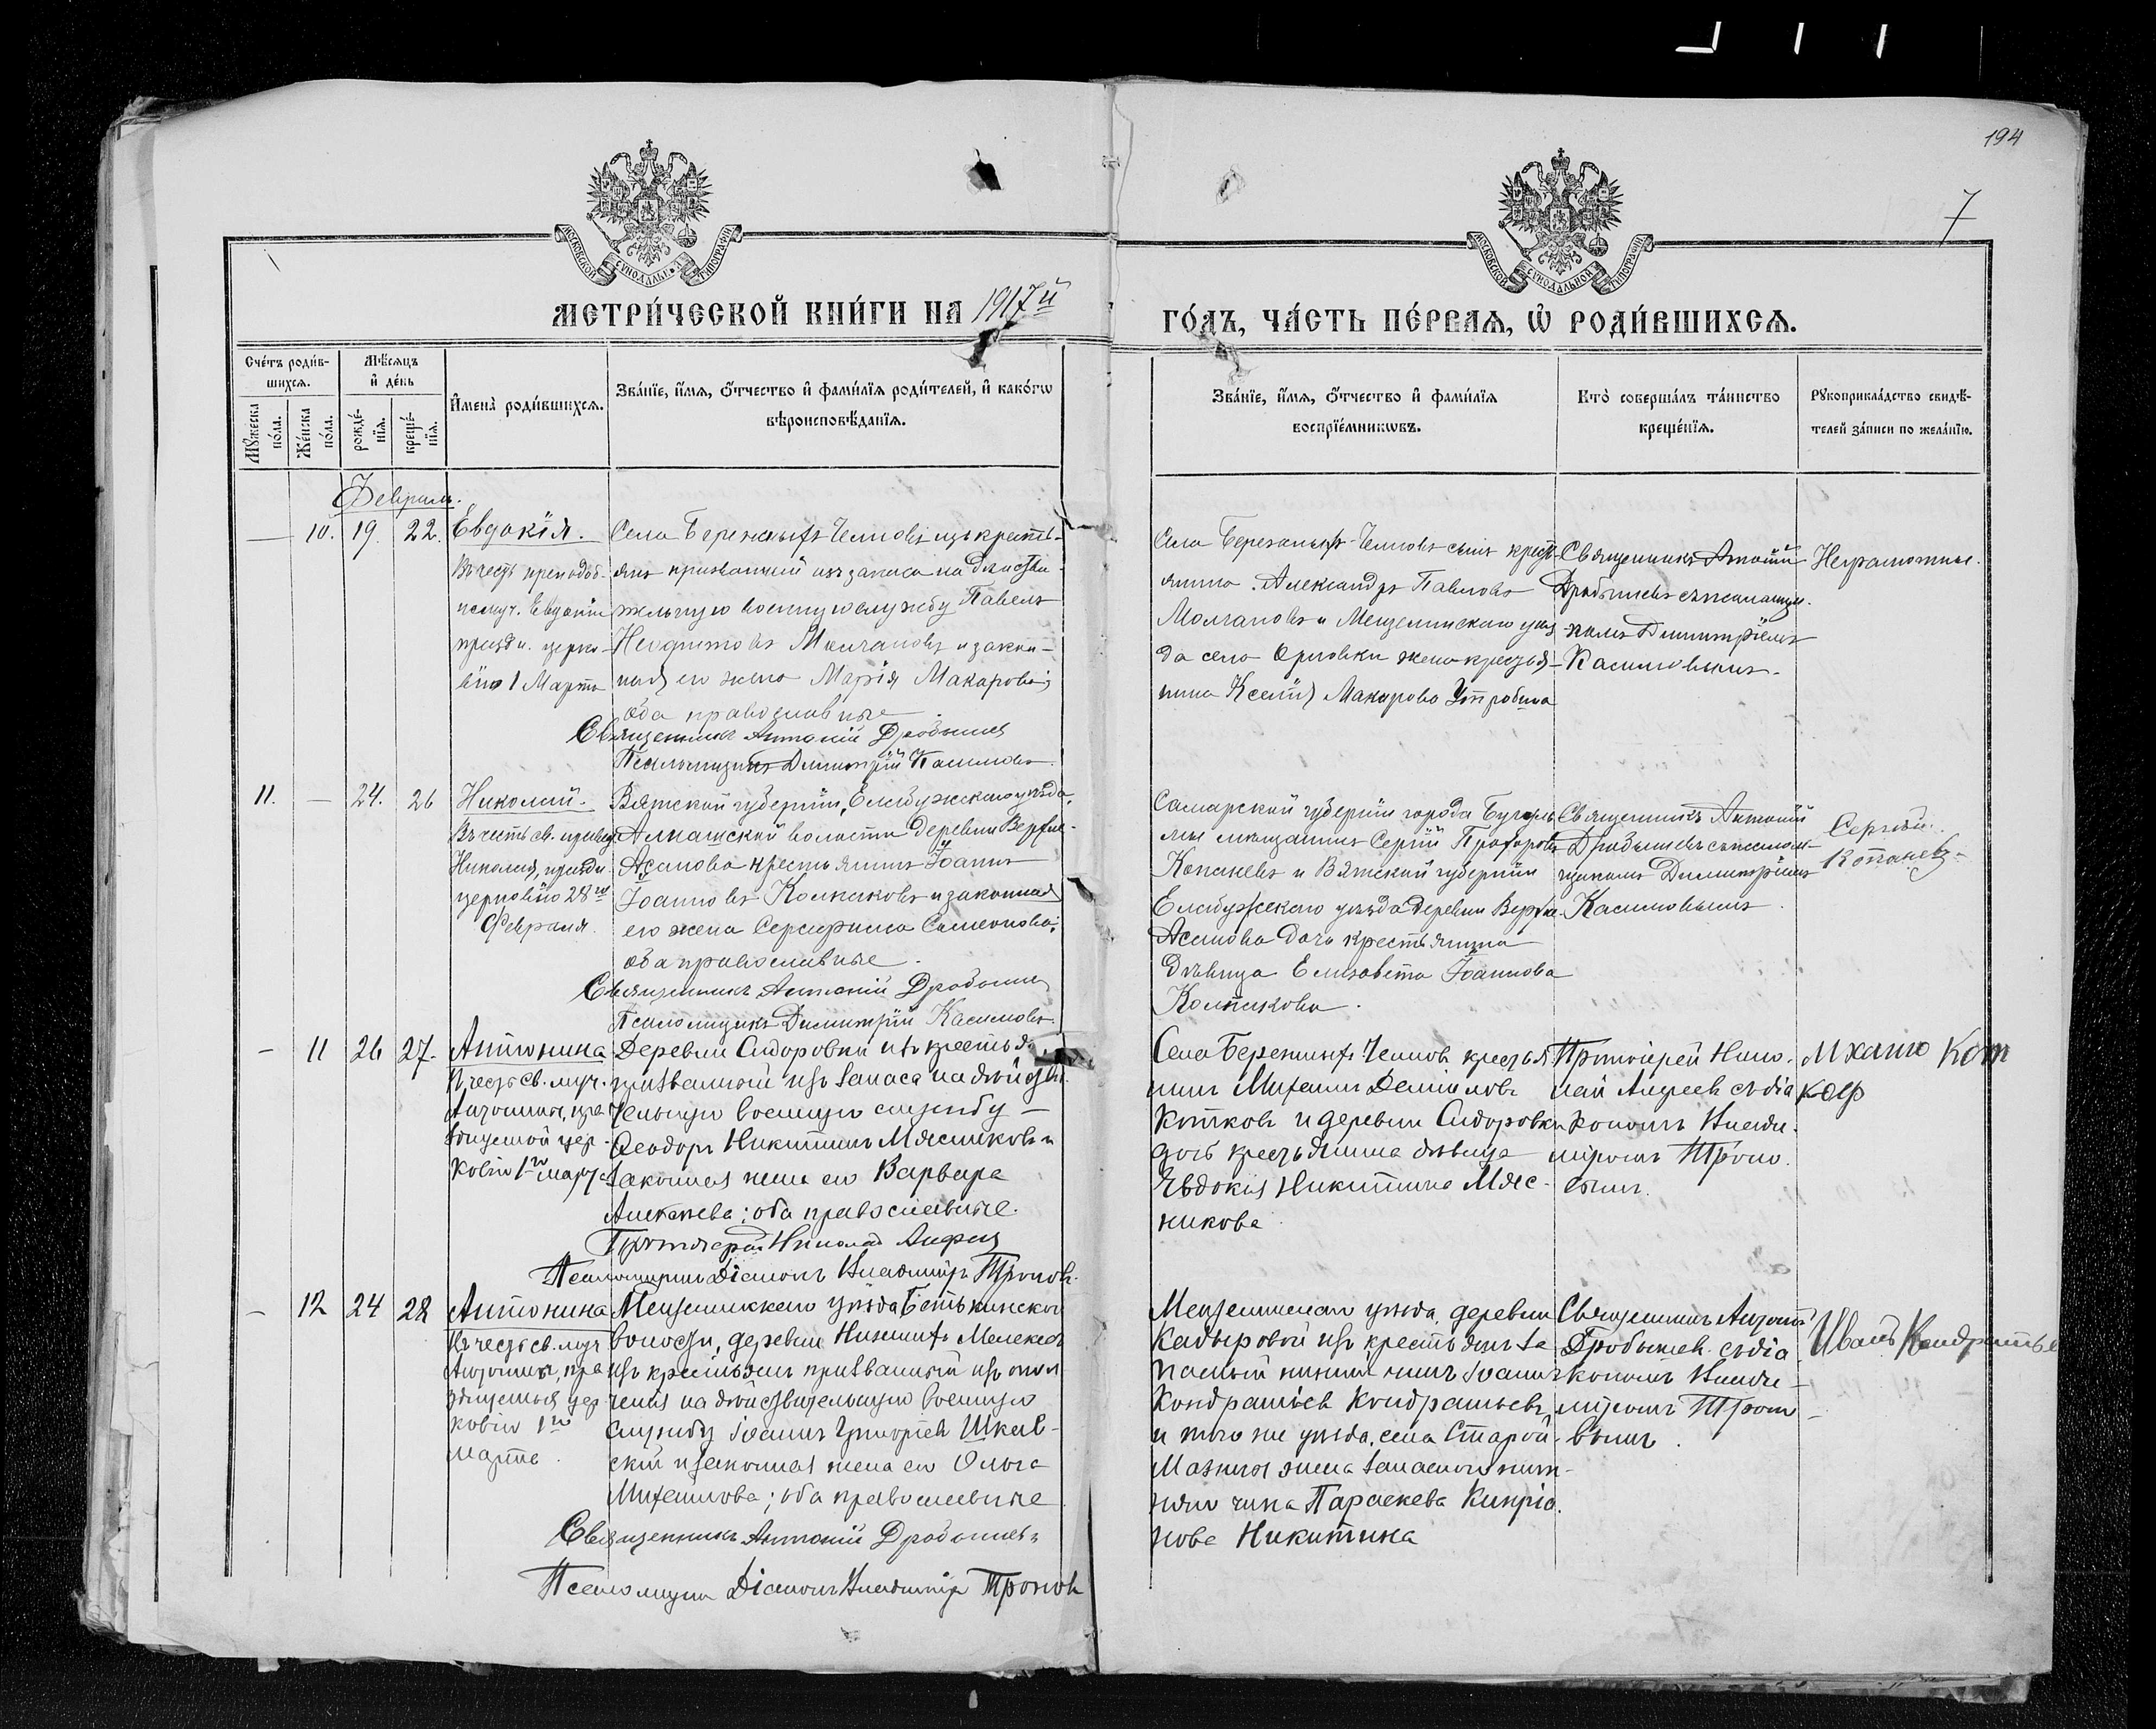 194
7
МОСКОВСКОЙ СУНОДАЛЬНОЙ ТИПОГРАФІИ
МОСКОВСКОЙ СУНОДАЛЬНОЙ ТИПОГРАФІИ
МЕТРИ́ЧЕСКОЙ КНИ́ГИ НА 1917й
ГО́ДЪ, ЧА́СТЬ ПЕ́РВАЯ, Ѡ РОДИ́ВШИХСЯ.
Сче́тъ роди́в-
шихся.
Мѣ́сяцъ
и де́нь
Мꙋ́жеска по́ла.
Же́нска по́ла.
рожде́-
нїя.
креще́-
нїя.
Имена̀ роди́вшихся.
Зва́нїе, и́мя, о́тчество и фами́лїя роди́телей, и како́гѡ
вѣроисповѣ́данїя.
Зва́нїе, и́мя, о́тчество и фами́лїя
воспрїе́мникѡвъ.
Кто̀ соверша́лъ та́инство
креще́нїя.
Рꙋкоприкла́дство свидѣ́-
телей за́писи по жела́нїю.
Февраль.
— 10. 19. 22. Евдокія.
Въ честь преподоб-
номуч. Евдокіи
праздн. церко-
вію 1 Марта
Села Бережныхъ Челновъ изъ кресть-
янъ призванный изъ запаса на дѣйстви-
тельную военную службу Павелъ
Неофитовъ Молчановъ и закон-
ная его жена Марія Макарова;
оба православные
Священникъ Антоній Дробышев
Псаломщикъ Димитрій Касимовъ.
Села Бережныхъ-Челновъ сынъ кресть-
янина Александръ Павловъ
Молчановъ и Мензелинскаго уѣз-
да села Орловки жена крестья-
нина Ксенія Макарова Утробина
Священникъ Антоній
Дробышевъ съ псаломщи-
комъ Димитріемъ
Касимовымъ.
Неграмотные.
11. — 24. 26 Николай.
Въ честь св. правед.
Николая, праздн.
церковію 28го
Февраля.
Вятской губерніи, Елабужскаго уѣзда,
Алнашской волости деревни Верхне-
Асанова крестьянинъ Іоаннъ
Іоанновъ Колпаковъ и законная
его жена Серафима Симеонова;
оба православные.
Священникъ Антоній Дробышев
Псаломщикъ Димитрій Касимовъ.
Самарской губерніи города Бугуль-
мы мѣщанинъ Сергій Прохоровъ
Копаневъ и Вятской губерніи
Елабужскаго уѣзда деревни Верхне-
Асанова дочь крестьянина
дѣвица Елизавета Іоаннова
Колпакова.
Священникъ Антоній
Дробышевъ съ псалом-
щикомъ Димитріемъ
Касимовымъ.
Сергѣй
Копаневъ
— 11 26 27. Антонина
Въ честь св. муч.
Антонины, пра-
зднуемой цер-
ковію 1го марта
Деревни Сидоровки изъ крестьянъ
призванный изъ запаса на дѣйстви-
тельную военную службу —
Ѳеодоръ Никитинъ Мясниковъ и
законная жена его Варвара
Алексѣева; оба православные.
Протоіерей Николай Андреев
Псаломщикъ Діаконъ Владимір Троновъ.
Села Бережныхъ Челновъ крестья-
нинъ Михаилъ Даниловъ
Котковъ и деревни Сидоровки
дочь крестьянина дѣвица
Евдокія Никитина Мяс-
никова
Протоіерей Нико-
лай Андреев съ діа-
кономъ Влади-
міромъ Троно-
вымъ.
— 12 24 28 Антонина
Въ честь св. муч.
Антонины, пра-
зднуемыя цер-
ковію 1го
марта.
Мензелинскаго уѣзда Бетькинской
волости, деревни Нижнихъ Мелекесъ
изъ крестьянъ призванный изъ опол-
ченія на дѣйствительную военную
службу Іоаннъ Григоріев Шкав-
скій и законная жена его Ольга
Михаилова; оба православные
Священникъ Антоній Дробышевъ
Псаломщикъ Діаконъ Владимір Тронов
Мензелинскаго уѣзда, деревни
Кадыровой изъ крестьянъ за-
пасный нижній чинъ Іоаннъ
Кондратіевъ Кондратьевъ
и того же уѣзда, села Старой
жена запаснаго ниж-
няго чина Параскева Кипріа-
нова Никитина
Священникъ Антоній
Дробышев. съ діа-
кономъ Влади-
міромъ Троно-
вымъ.
Иванъ Кондратье